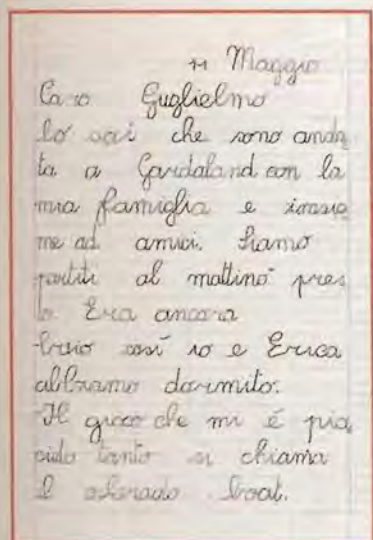 11 Maggio
Caro Guglielmo
lo sai che sono anda
ta a Gardaland con la
mia famiglia e insie
me ad amici. Siamo
partiti al mattino pres
to. Era ancora
buio così io e Erica
abbiamo dormito.
Il gioco che mi é pia
ciuto tanto si chiama
boat.